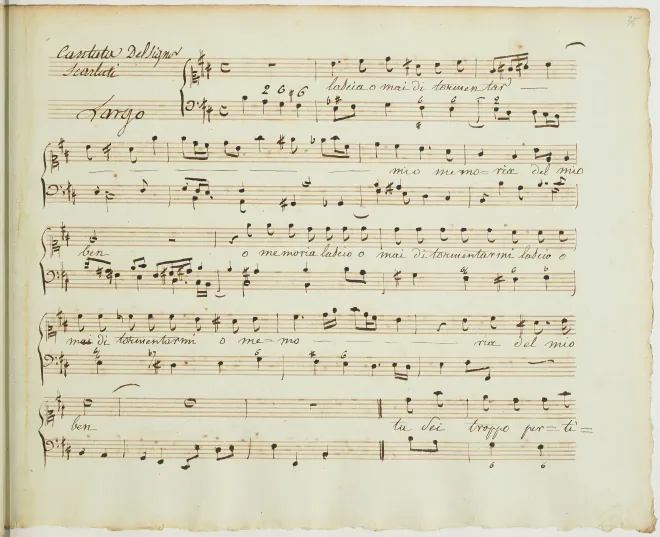 Cantata Del Signor
Scarlati
Largo
2 6 6
lascia o mai di tormentar
6 6 2
mio memo=ria del mio
ben o memoria lascio o mai di tormentarmi lascio o
mai di tormentarmi o me=mo ria del mio
6 6
ben tu sei troppo per=ti=
6 6